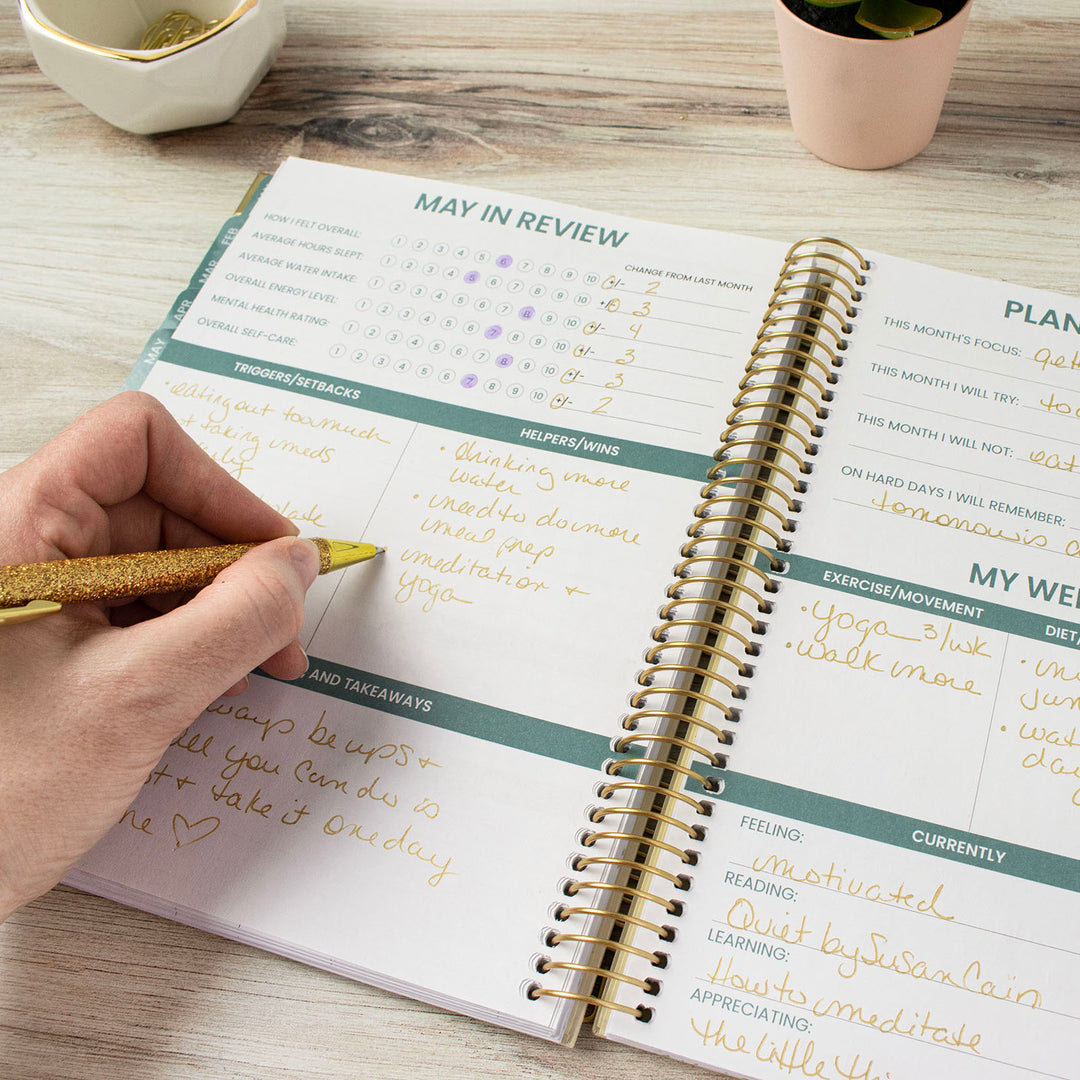 FEB
MAR
APR
MAY
MAY IN REVIEW
CHANGE FROM LAST MONTH
HOW I FELT OVERALL: 1 2 3 4 5 6 7 8 9 10 +/- 2
AVERAGE HOURS SLEPT: 1 2 3 4 5 6 7 8 9 10 +/- 3
AVERAGE WATER INTAKE: 1 2 3 4 5 6 7 8 9 10 +/- 4
OVERALL ENERGY LEVEL: 1 2 3 4 5 6 7 8 9 10 +/- 3
MENTAL HEALTH RATING: 1 2 3 4 5 6 7 8 9 10 +/- 3
OVERALL SELF-CARE: 1 2 3 4 5 6 7 8 9 10 +/- 2
TRIGGERS/SETBACKS
• eating out too much
taking meds
HELPERS/WINS
• drinking more
water
• need to do more
meal prep
meditation +
yoga
AND TAKEAWAYS
be ups +
you can do is
+ take it one day
♡
PLAN
THIS MONTH'S FOCUS:
THIS MONTH I WILL TRY:
THIS MONTH I WILL NOT:
ON HARD DAYS I WILL REMEMBER:
tomorrow is
MY WE
EXERCISE/MOVEMENT
• yoga 3/wk
• walk more
DIET/
CURRENTLY
FEELING:
motivated
READING:
Quiet by Susan Cain
LEARNING:
How to meditate
APPRECIATING:
the little